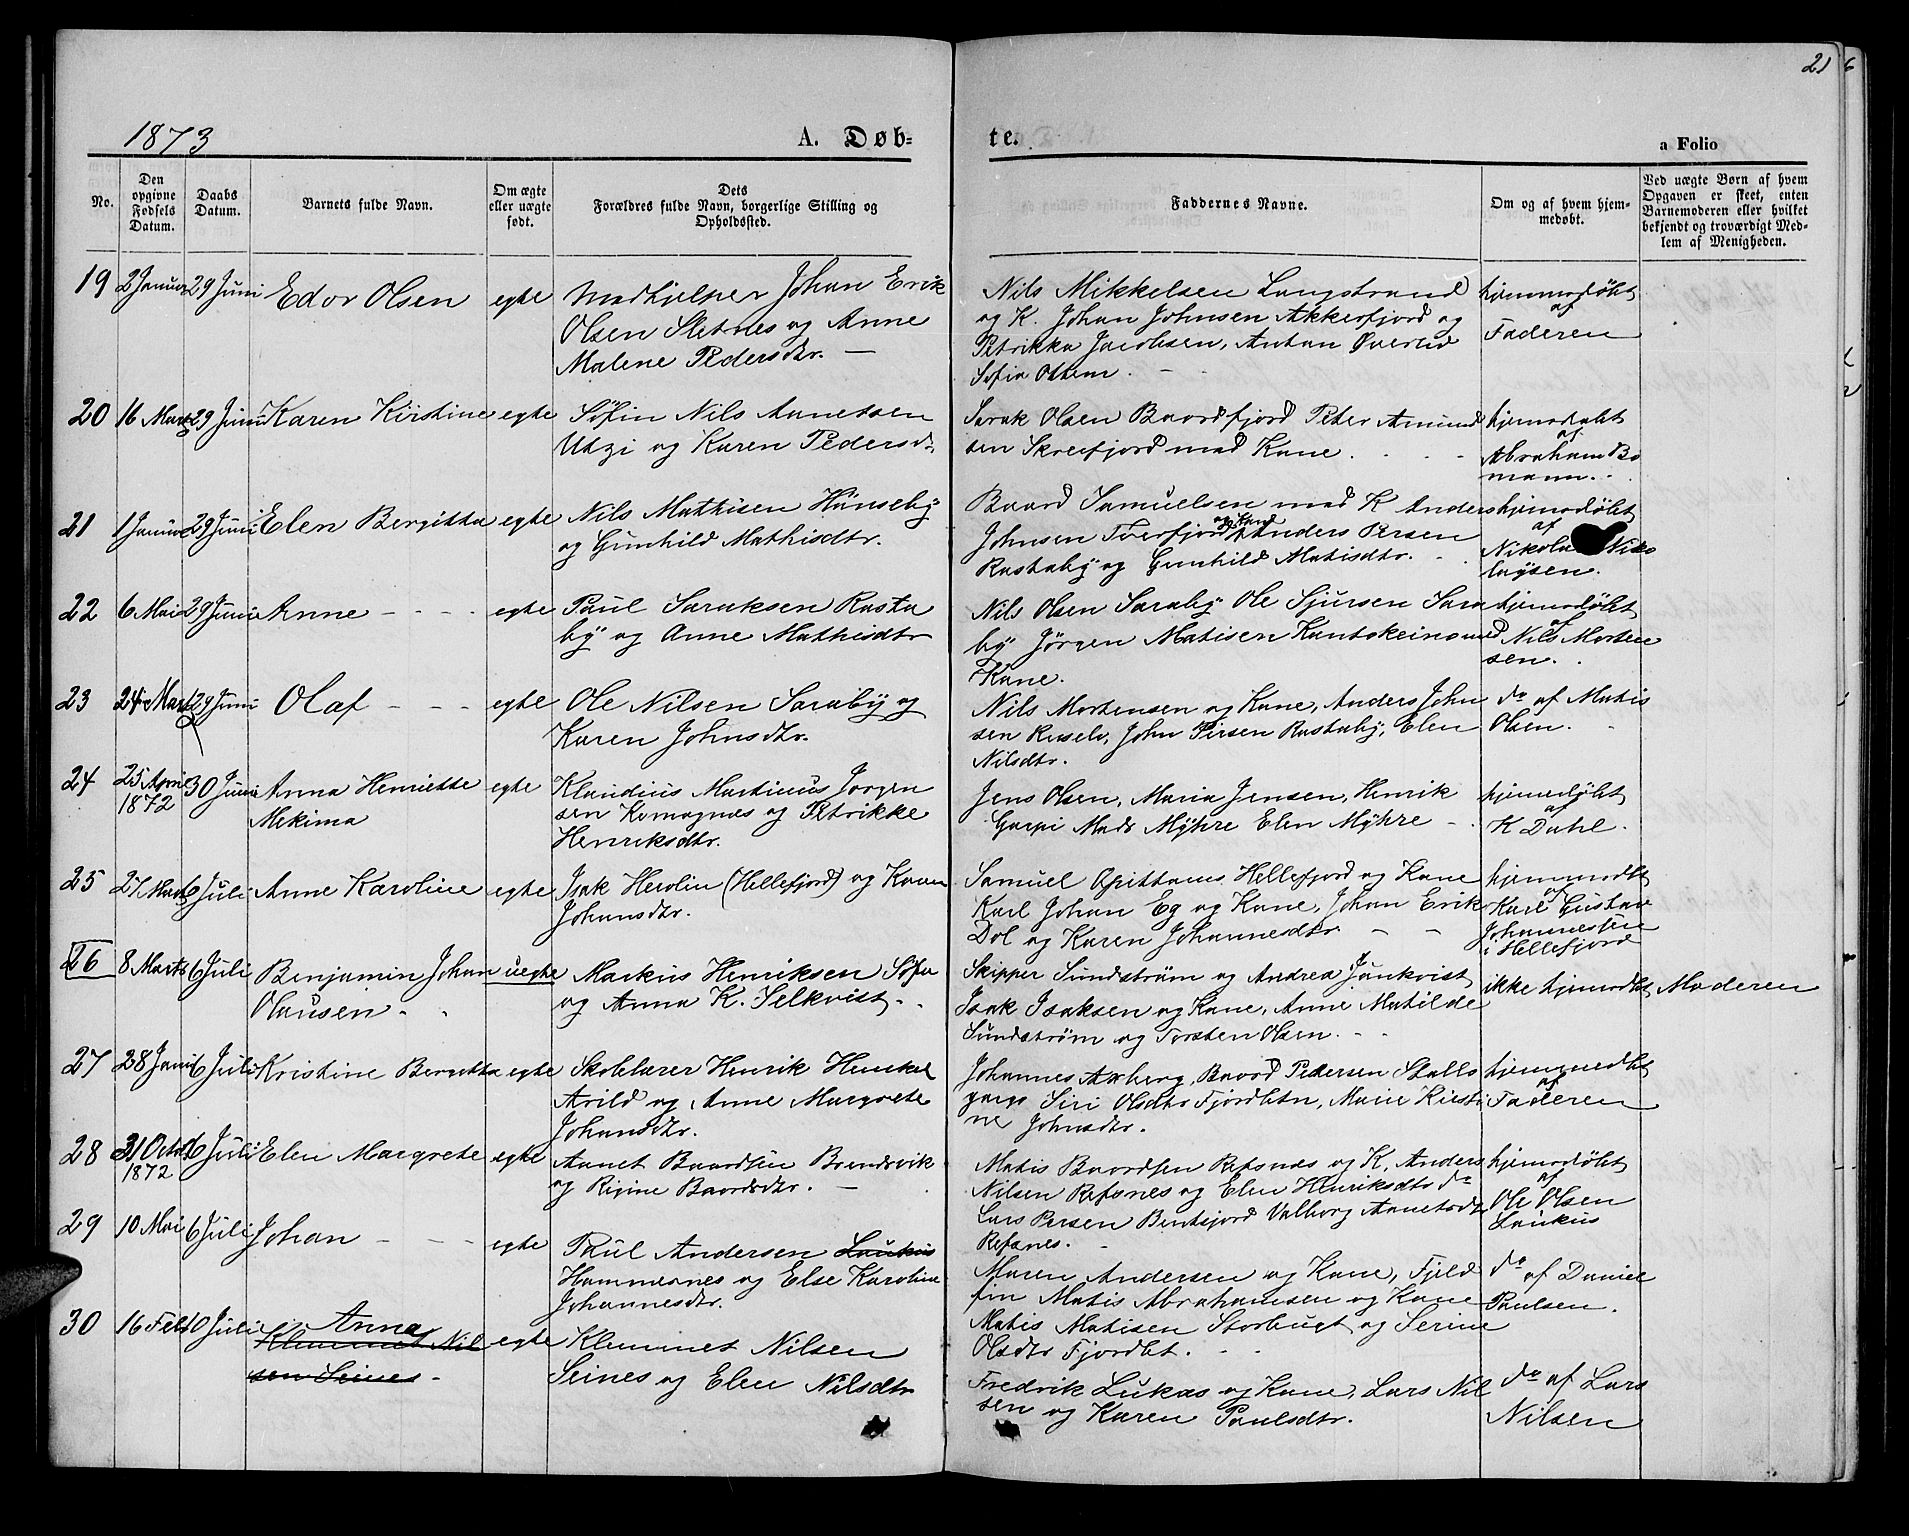 21
6
1873
A. Døb=
te.
a Folio
No.
Den opgivne Fødsels Datum.
Daabs Datum.
Barnets fulde Navn.
Om ægte eller uægte født.
Dets Forældres fulde Navn, borgerlige Stilling og Opholdssted.
Faddernes Navne.
Om og af hvem hjemmedøbt.
Ved uægte Børn af hvem Opgaven er skeet, enten Barnemoderen eller hvilket bekjendt og troværdigt Medlem af Menigheden.
19 2 Januar 29 Juni Edor Olsen egte Madhjelper Johan Erik
Olsen Sletnes og Anne
Malene Pedersdtr. —
Nils Mikkelsen Langstrand
og K. Johan Johnsen Akkerfjord og
Petrikka Jacobsen, Anton
Sofia
hjemmedøbt
af
Faderen
20 16 Marts 29 Juni Karen Kirstine egte Søfin Nils Aanetsen
Utzi og Karen Pedersd.
Sarak Olsen Baardfjord Peter Amund
sen Skreifjord med Kane.
hjemedøbt
af
Abraham Bo
mann.
21 1 Januar 29 Juni Elen Bergitta egte Nils Mathisen Hönseby
og Gunhild Mathisdtr.
Baard Samuelsen med K Anders
Johnsen Tverfjord og Kane Anders Persen
Rastaby og Gunhild Matisdtr.
hjemedøbt
af
Nikola Niko
laysen.
22 6 Mai 29 Juni Anne — egte Paul Saraksen Rasta
by og Anne Mathisdtr
Nils Olsen Saraby Ole Sjursen Sara
by Jørgen Matisen Kautokeino med
Kane.
hjemedøbt
af
Nils Morten
sen.
23 24 Marts 29 Juni Olaf — egte Ole Nilsen Saraby og
Karen Johnsdtr.
Nils Mortensen og Kane, Anders John
sen Russelv, John Persen Rastaby, Elen
Nilsdtr.
do af Matis
Olsen.
24 25 April 1872 30 Juni Anna Henriette
Mekima
egte Klaudius Martinus Jørgen
sen Komagnes og Petrikke
Henriksdtr.
Jens Olsen, Maria Jensen, Henrik
Garpi Mads Myhre Elen Myhre —
hjemedøbt
af
K Dahl.
25 27 Marts 6 Juli Anne Karoline egte Isak Herolin (Hellefjord) og Karen
Johansdtr.
Samuel Hellefjord og Kane
Karl Johan Eg og Kane, Johan Erik
Dol og Karen Johannesdtr.
hjemmedbt
af
Karl Gustav
Johannessen
i Hellefjord
26 8 Marts 6 Juli Benjamin Johan
Olausen
uegte Markus Henriksen Søfin
og Anna K. Selkvist.
Skipper Sundstrøm og Andrea Junkvist
Isak Isaksen og Kane, Anne Matilde
Sundstrøm og Torsten Olsen.
ikke hjemedbt Moderen
27 28 Janu 6 Juli Kristine Bergitta egte Skolelærer Henrik Henkel
Arild og Anne Margrete
Johansdtr.
Johannes Aarberg, Baard Pedersen Stalls
gargo Siri Olsdtr Fjordbtn, Marie Kirsti
ne Johnsdtr.
hjemmedbt
af
Faderen
28 31 Octob 1872 6 Juli Elen Margrete egte Aanet Baardsen Brendsvik
og Rigine Baardsdtr. —
Matis Baardsen Refsnes og K, Anders
Nilsen Refsnes og Elen Henriksdtr do
Lars Persen Bentsjord Valborg Aanetsdtr
Refsnes.
hjemedøbt
af
Ole Olsen
Laukus
29 10 Mai 6 Juli Johan — egte Paul Andersen Laukus
Hammernes og Else Karoline
Johannesdtr.
Maren Andersen og Kane, Fjeld
fin Matis Abrahamsen og Kane
Matis Matisen Storbugt og Serine
Olsdtr Fjordbt.
do af Daniel
Paulsen.
30 16 Feb 10 Juli Anna
Klemmet Nil
sen Seines
egte Klemmet Nilsen
Seines og Elen Nilsdtr
Fredrik Lukas og Kane, Lars Nil
sen og Karen Paulsdtr.
do af Lars
Nilsen